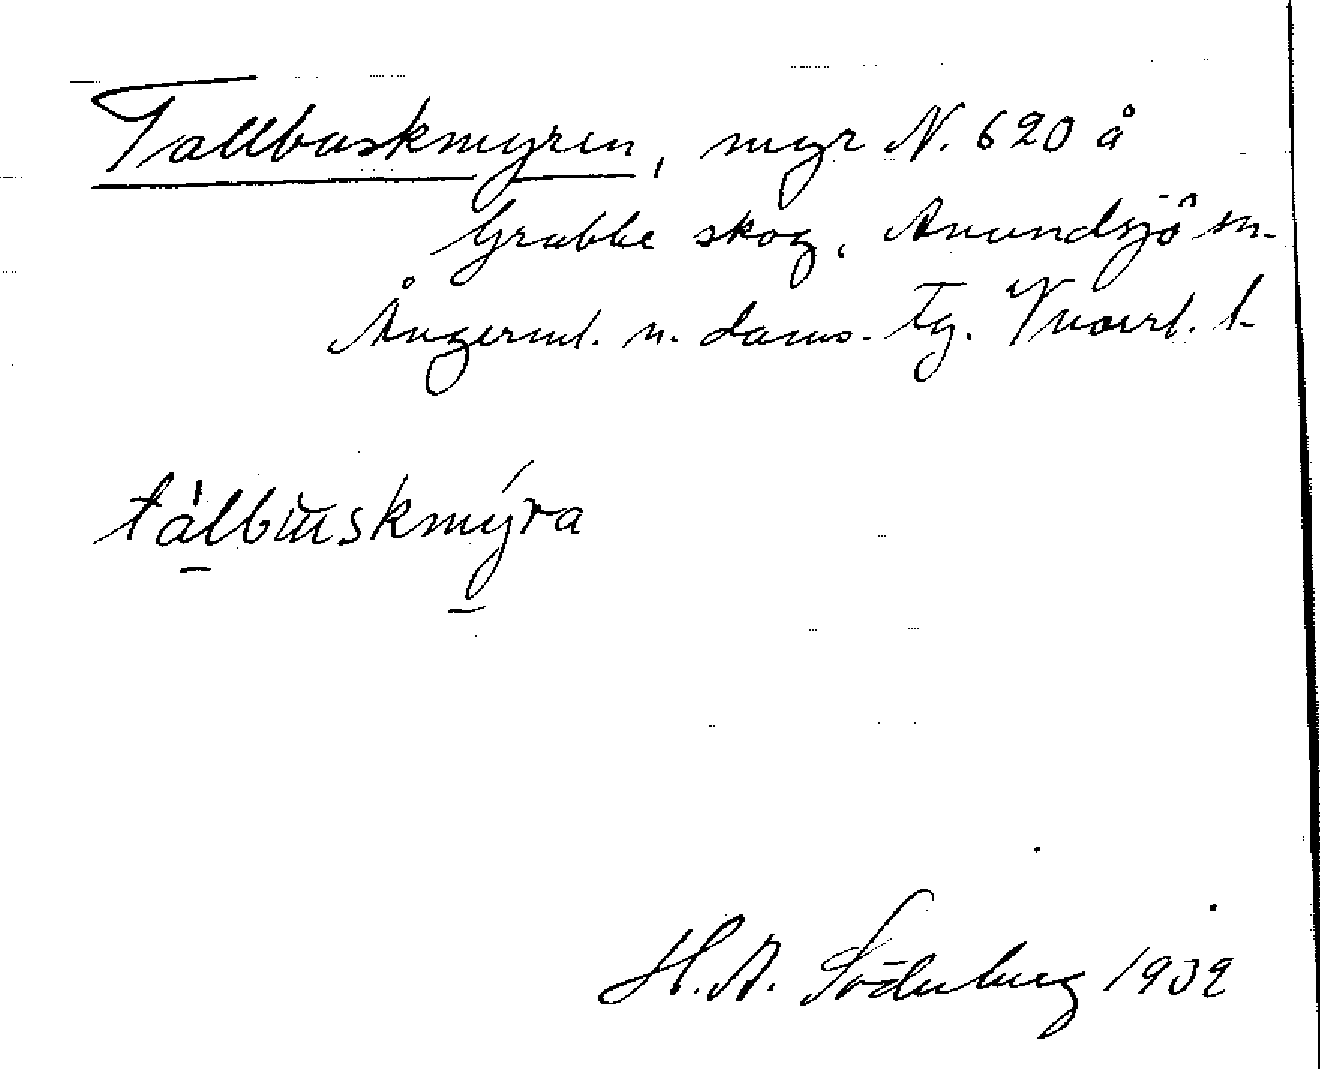 Tallbuskmyren, myr N. 620 å
Grubbe skog, Anundsjö sn.
Ångerml. n. doms. tg. Vnorrl. l.
tálbuskmýra
H. A. Söderberg 1932